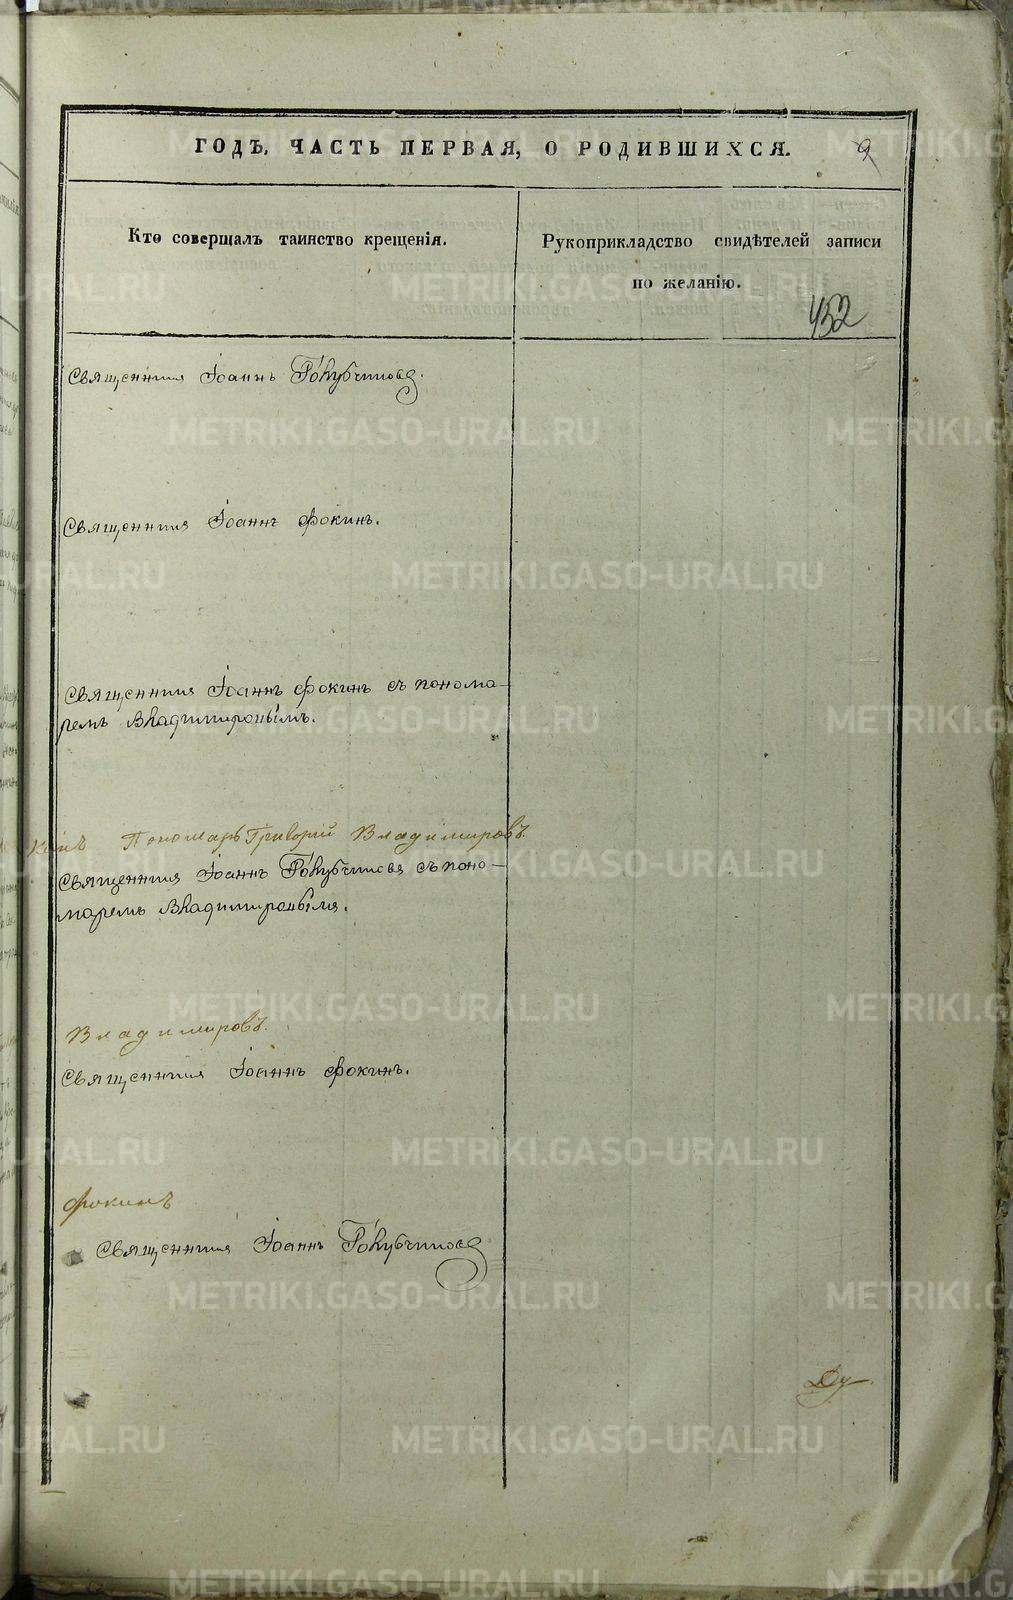 ГОДЪ. ЧАСТЬ ПЕРВАЯ, О РОДИВШИХСЯ. 9
Кто совершалъ таинство крещенія.
Рукоприкладство свидѣтелей записи
по желанію.
452
Священникъ Іоаннъ
Священникъ Іоаннъ Фокинъ.
Священникъ Іоаннъ Фокинъ съ понома-
ремъ Владимировымъ.
Пономарь Григорій Владиміровъ.
Священникъ Іоаннъ съ поно-
маремъ Владимировымъ.
Владиміровъ.
Священникъ Іоаннъ Фокинъ.
Фокинъ
Священникъ Іоаннъ
METRIKI.GASO-URAL.RU